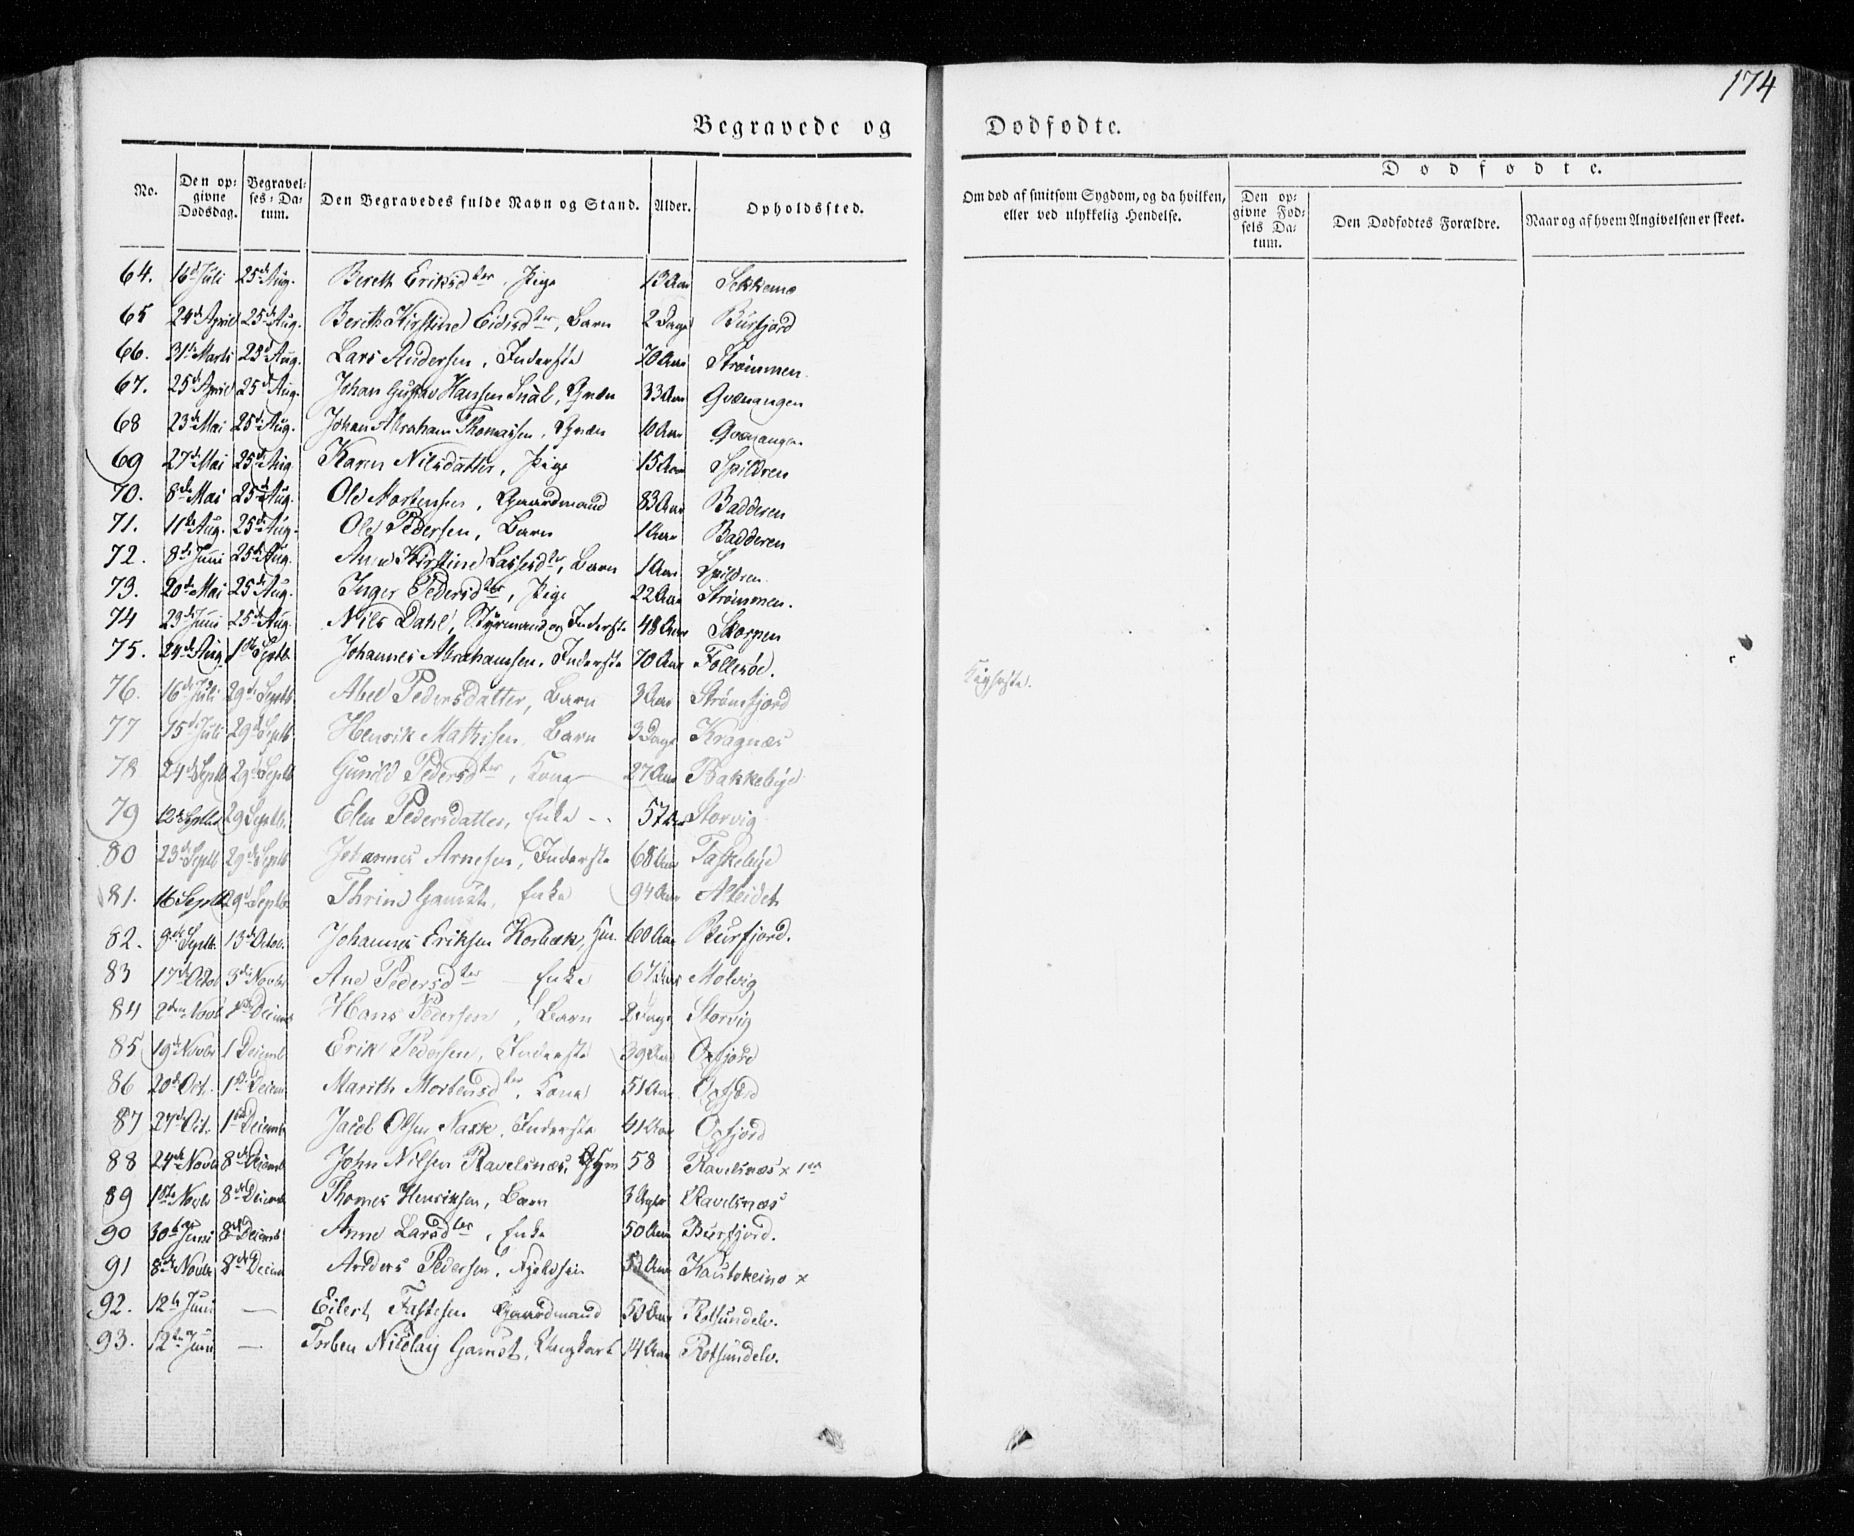 174
Begravede og Dødfødte.
No. Den opgivne Dødsdag. Begravelses-Datum. Den Begravedes fulde Navn og Stand. Alder. Opholdssted. Om død af smitsom Sygdom, og da hvilken, eller ved ulykkelig Hendelse. Dødfødte. Den opgivne Fødsels Datum. Den Dødfødtes Forældre. Naar og af hvem Angivelsen er skeet.
64. 16d Juli 25d Aug. Bereth Eriksdter, Pige 13 Aar Sekkemo
65 24d April 25d Aug. Bereth Kirstine Eidisdter, Barn 2 Dage Burfjord
66. 31d Marts 25d Aug. Lars Andersen, Inderste 70 Aar Strømmen
67. 25d April 25d Aug. Johan Gustav Hansen, Qvæn 33 Aar Qvænangen
68 23d Mai 25d Aug. Johan Abraham Thomassen, Qvæn 10 Aar Qvænangen
69 27d Mai 25d Aug. Karen Nilsdatter, Pige 15 Aar Spildren
70. 8de Mai 25d Aug. Ole Mortensen, Gaardmand 83 Aar Badderen
71. 11te Aug. 25de Aug. Ole Pedersen, Barn 1 Aar Badderen
72. 8de Juni 25de Aug. Ane Kirstine Lassesdter, Barn 1 Aar Spildren
73. 20de Mai 25de Aug. Inger Pedersdter, Pige 22 Aar Strømmen.
74 23d Juni 25d Aug. Nils Dahl, Styrmand og Inderste 48 Aar Skorpen
75. 24d Aug. 1ste Septb. Johannes Abrahamsen, Inderste 70 Aar Follesøe.
76. 16d Juli 29de Septb. Abel Pedersdatter, Barn 3 Aar Strømfjord Kighoste.
77 15d Juli 29d Septb Henrik Mathisen, Barn 3 Dage Kragnæs
78 24d Septb 29d Septb. Gunild Pedersdter, Kone 27 Aar Bakkebye
79 12 Septbr 29 Septbr. Elen Pedersdatter, Enke 57 Aar Storvig
80 23d Septb 29d Septb Johannes Arnesen, Inderste 68 Aar Taskebye
81. 16 Septb 29d Septb. Thrine Gamst, Enke 94 Aar Alteidet
82. 9de Septb. 13de Octob. Johannes Eriksen Korbæk, 60 Aar Burfjord.
83 17d Octob 3die Novbr Ane Pedersdter Enke 67 Aar Molvig
84 2den Novb 1ste Decemb Hans Pedersen, Barn 2 Dage Storvig
85 19d Novbr 1 Decemb Erik Pedersen, Inderste 39 Aar Oxfjord
86 20d Oct. 1ste Decem Marith Mortensdter, Kone 51 Aar Oxfjord
87 27d Oct. 1ste Decemb Jacob Olsen Nask, Inderste 41 Aar Oxfjord
88 24de Novb 8de Decemb John Nilsen Ravelsnæs, 58 Ravelsnæs x
89 1ste Novbr 8de Decemb Thomes Henriksen, Barn 3 Uger Ravelsnæs
90 30te Juni 8de Decemb Anne Larsdter, Enke 50 Aar Burfjord.
91 8de Novbr 8de Decem Anders Pedersen, Fjeldfin 52 Aar Kautokeino x
92. 12te Juni — Eilert Fastesen Gaardmand 53 Aar Rotsundelv.
93. 12te Juni — Torben Nicolay Gamst, Ungkarl 14 Aar Rotsundelv.